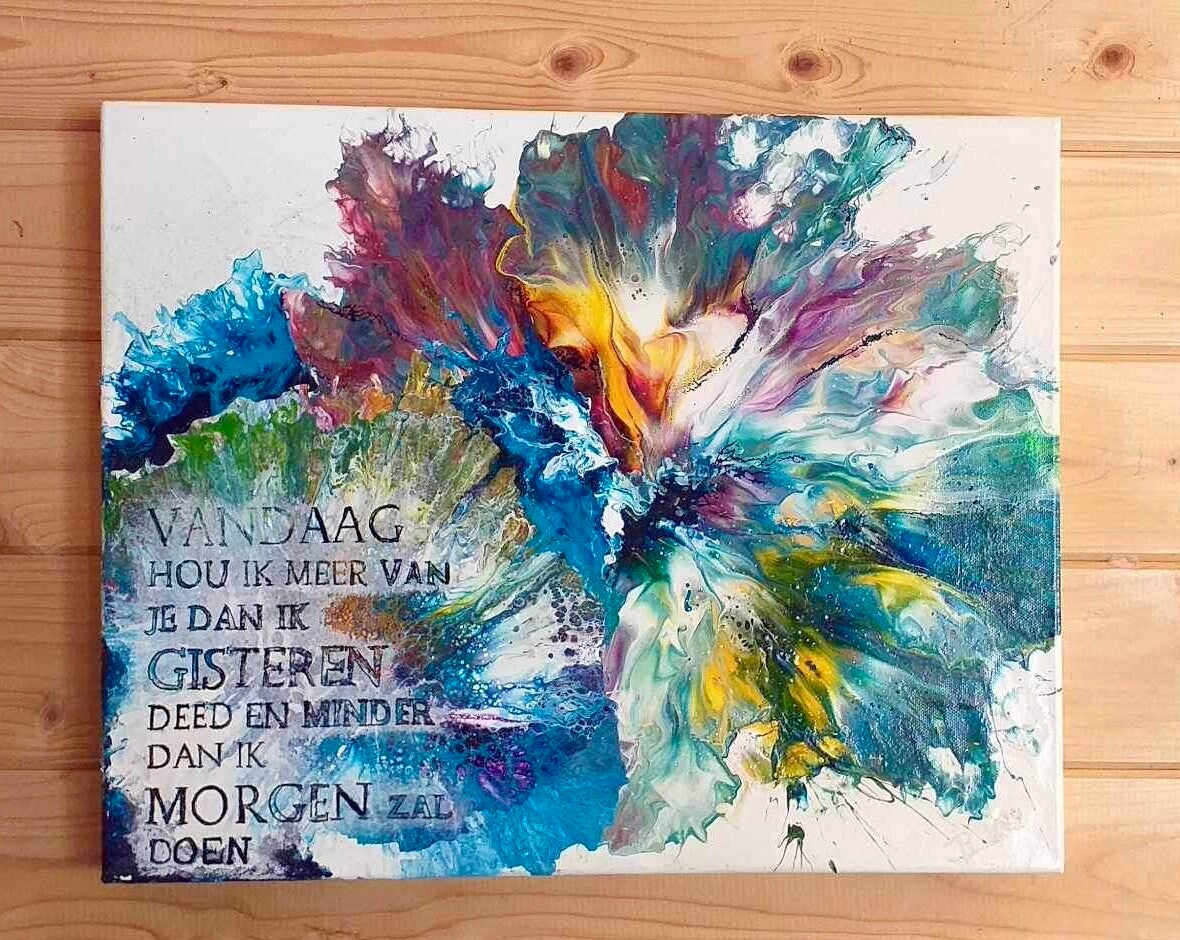 VANDAAG
HOU IK MEER VAN
JE DAN IK
GISTEREN
DEED EN MINDER
DAN IK
MORGEN ZAL
DOEN